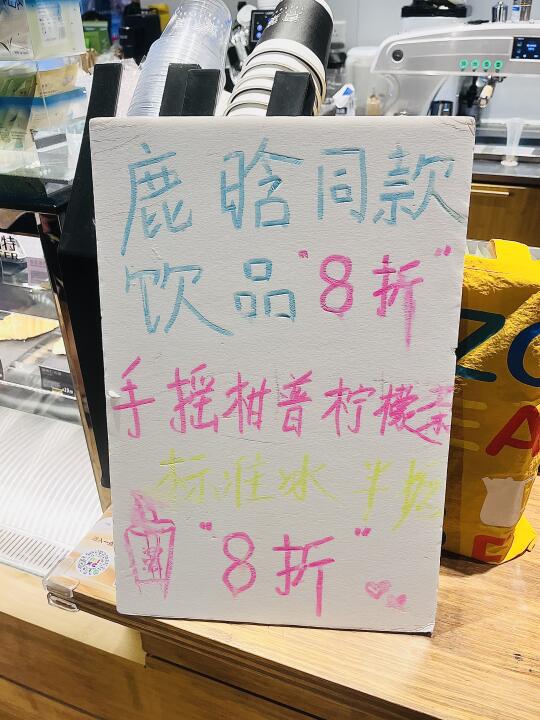 鹿晗同款
饮品"8折"
手摇柑普柠檬茶
标准冰 半糖
"8折"